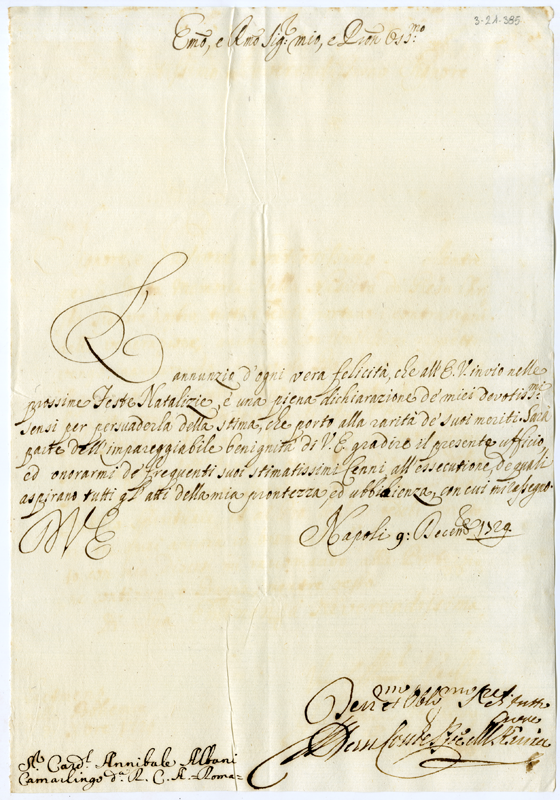 3-21-385
Emo, e Rmo Sigr mio, e Pron Ossmo
L'annunzio d'ogni vera felicità, che all'E.V. invio nelle
prossime Feste Natalizie, è una piena dichiarazione de' miei devotissmi
sensi per persuaderla della stima, che porto alla rarità de' suoi meriti. Sarà
parte dell'impareggiabile benignità di V.E. gradire il presente ufficio,
ed onorarmi de' frequenti suoi stimatissimi cenni all'essecutione, de quali
aspirano tutti gl'atti della mia prontezza, ed ubbidienza, con cui mi rassegno.
D V E
Napoli 9: Decembre 1729
Devmo et Obbmo
tutto
cuore
Sr Cardl Annibale Albani
Camarlingo da R. C. A. - Roma